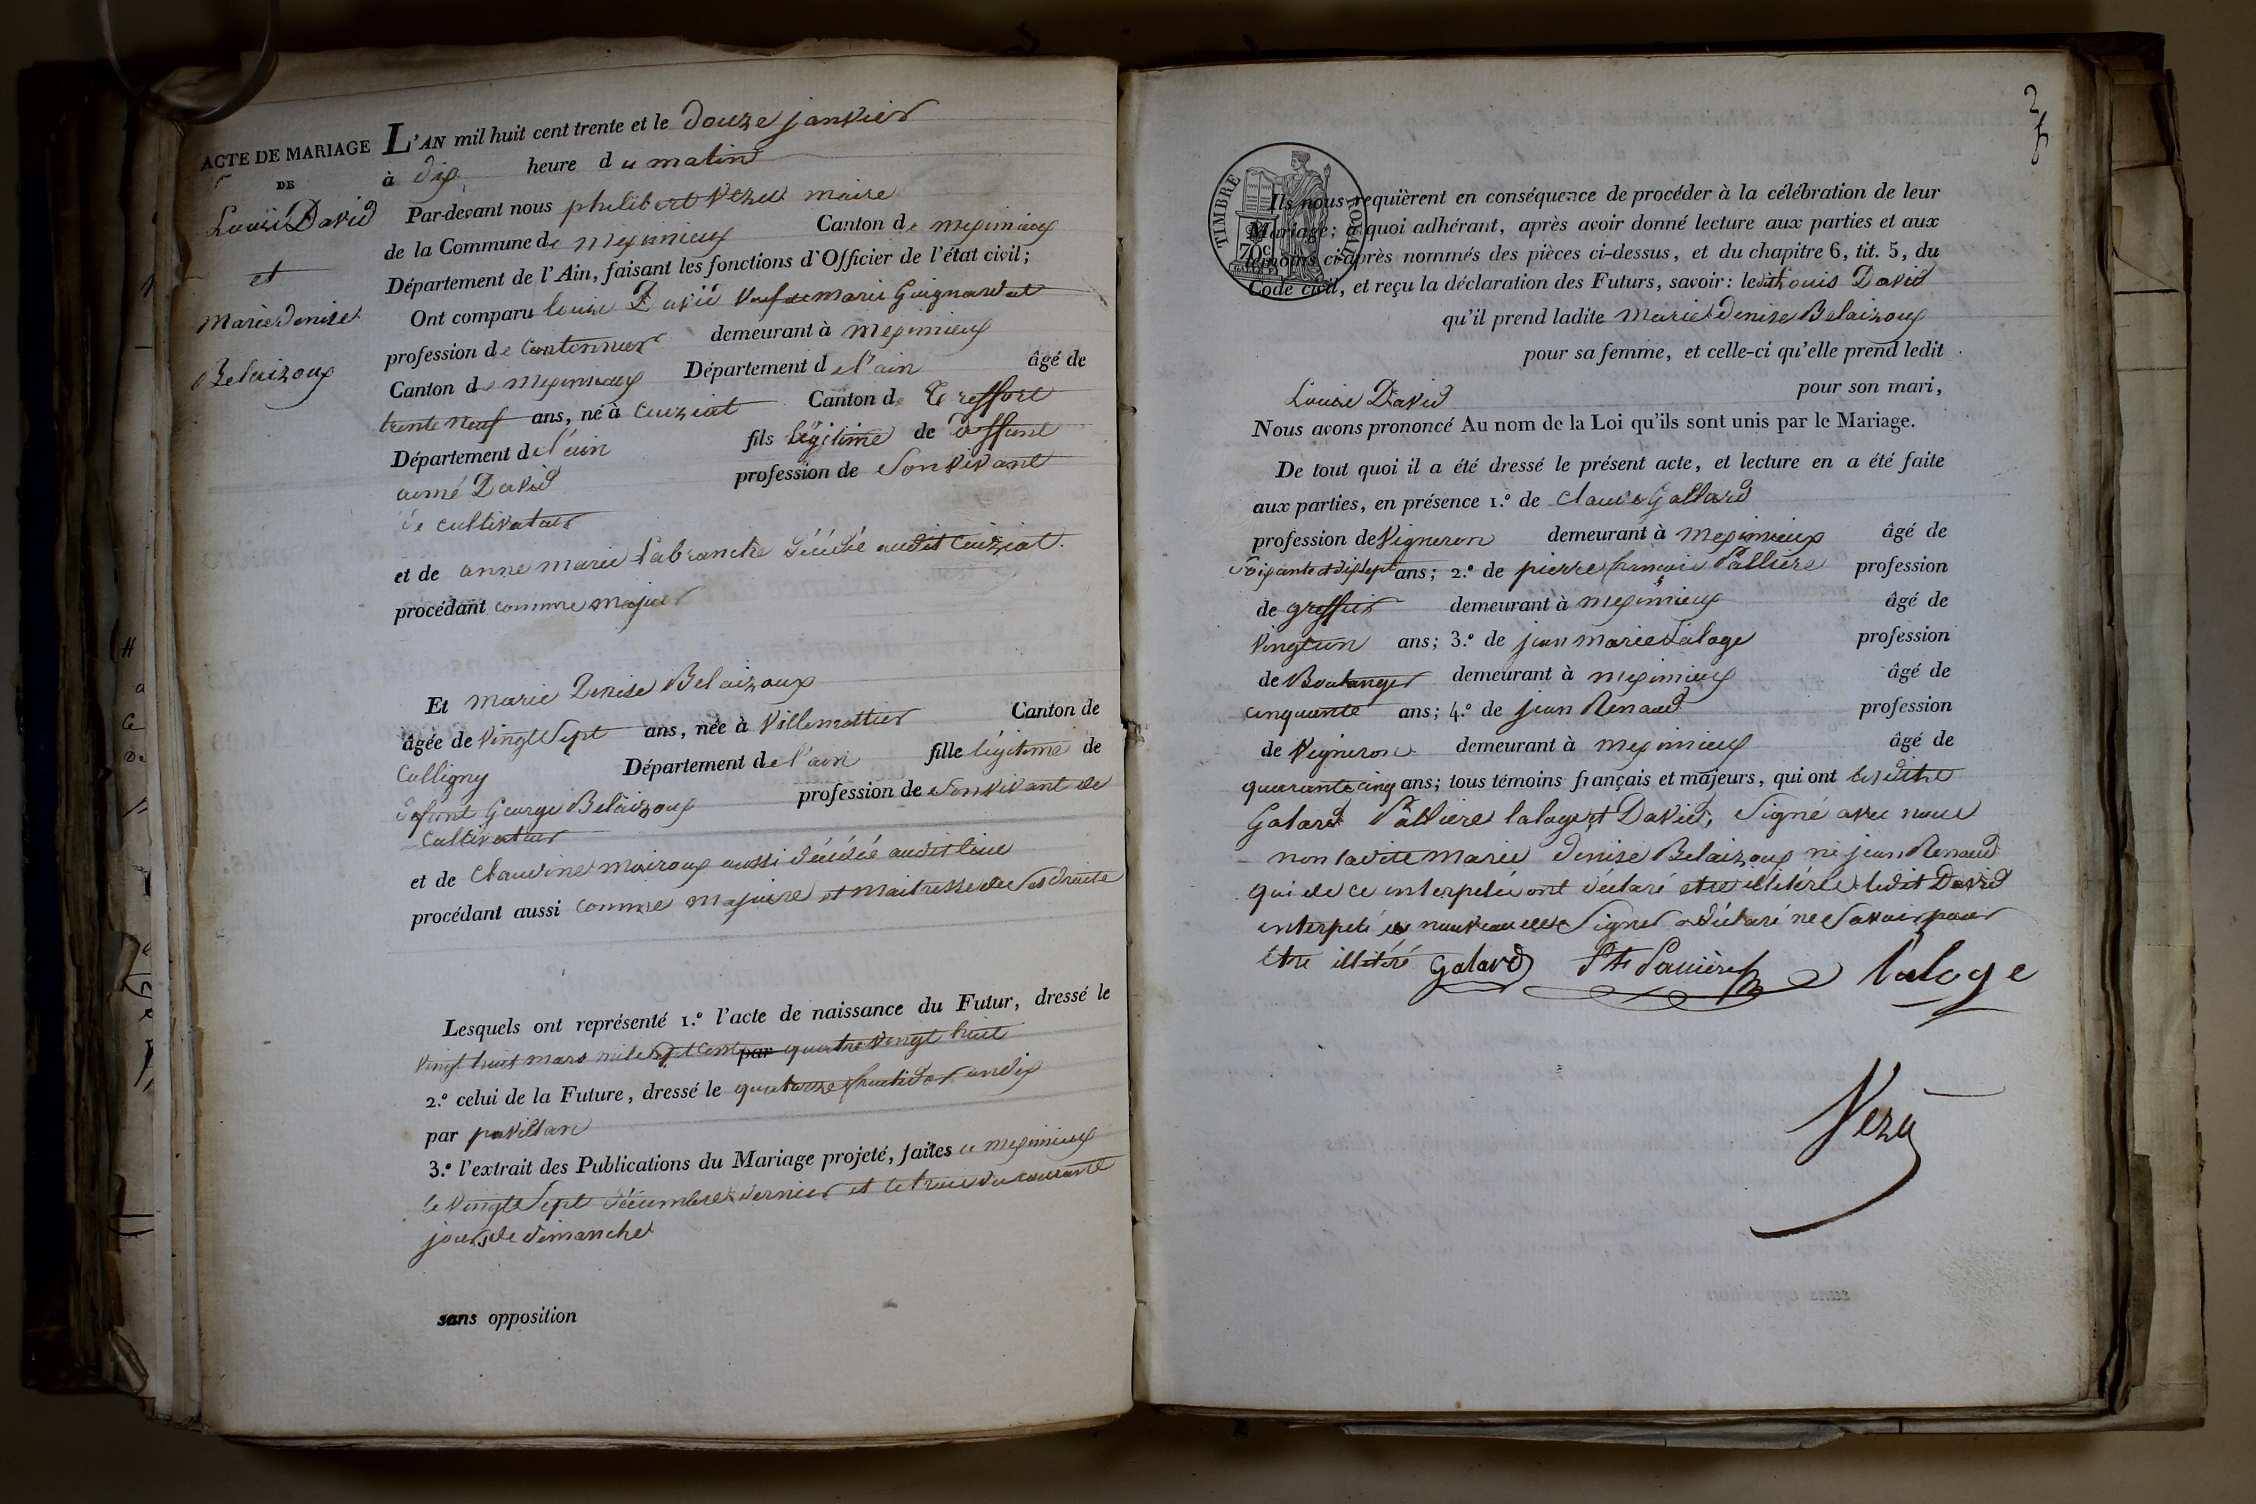 ACTE DE MARIAGE
DE
Louis David
et
Marie denise
Belaizoux
L'AN mil huit cent trente et le douze janvier
à dix heure du matin
Par-devant nous philibert Vezu maire
de la Commune de meximieux Canton de meximieux
Département de l'Ain, faisant les fonctions d'Officier de l'état civil;
Ont comparu louis David Veuf de marie Guignardat
profession de Cantonnier demeurant à meximieux
Canton de meximieux Département de l'ain âgé de
trente neuf ans, né à Cuiziat Canton de Treffort
Département de l'ain fils légitime de deffunt
aimé David profession de Son vivant
de cultivateur
et de anne marie Labranche décédée audit Cuiziat.
procédant comme majeur
Et marie Denise Belaizoux
âgée de vingt Sept ans, née à Villemottier Canton de
Colligny Département de l'ain fille légitime de
defunt George Belaizoux profession de Son vivant de
Cultivateur
et de Claudine moiroux aussi décédée audit lieu
procédant aussi comme majeure et maitresse de Ses droits
Lesquels ont représenté 1.º l'acte de naissance du Futur, dressé le
vingt huit mars mil Sept Cent par quatre vingt huit
2.º celui de la Future, dressé le quatorze fructidor an dix
par pavillan
3.º l'extrait des Publications du Mariage projeté, faites a meximieux
le vingt Sept décembre dernier et le trois du courant
jours de dimanche
sans opposition
2
TIMBRE ROYAL
70c
Ils nous requièrent en conséquence de procéder à la célébration de leur
Mariage; à quoi adhérant, après avoir donné lecture aux parties et aux
témoins ci-après nommés des pièces ci-dessus, et du chapitre 6, tit. 5, du
Code civil, et reçu la déclaration des Futurs, savoir: ledit Louis David
qu'il prend ladite marie denise Belaizoux
pour sa femme, et celle-ci qu'elle prend ledit
Louis David pour son mari,
Nous avons prononcé Au nom de la Loi qu'ils sont unis par le Mariage.
De tout quoi il a été dressé le présent acte, et lecture en a été faite
aux parties, en présence 1.º de Claude Gallard
profession de Vigneron demeurant à meximieux âgé de
Soixante et dix Sept ans; 2.º de pierre françois Pallière profession
de greffier demeurant à meximieux âgé de
vingt un ans; 3.º de jean marie Laloge profession
de Boulanger demeurant à meximieux âgé de
cinquante ans; 4.º de jean Renaud profession
de Vigneron demeurant à meximieux âgé de
quarante cinq ans; tous témoins français et majeurs, qui ont lesdits
Galard Pallière laloge et David, Signé avec nous
non ladite marie denise Belaizoux ni jean Renaud
qui de ce interpelés ont déclaré etre illitérés. ledit David
interpelé de nouveau de Signer a déclaré ne Savoir pour
etre illitéré Galard Pallière laloge
Vezu